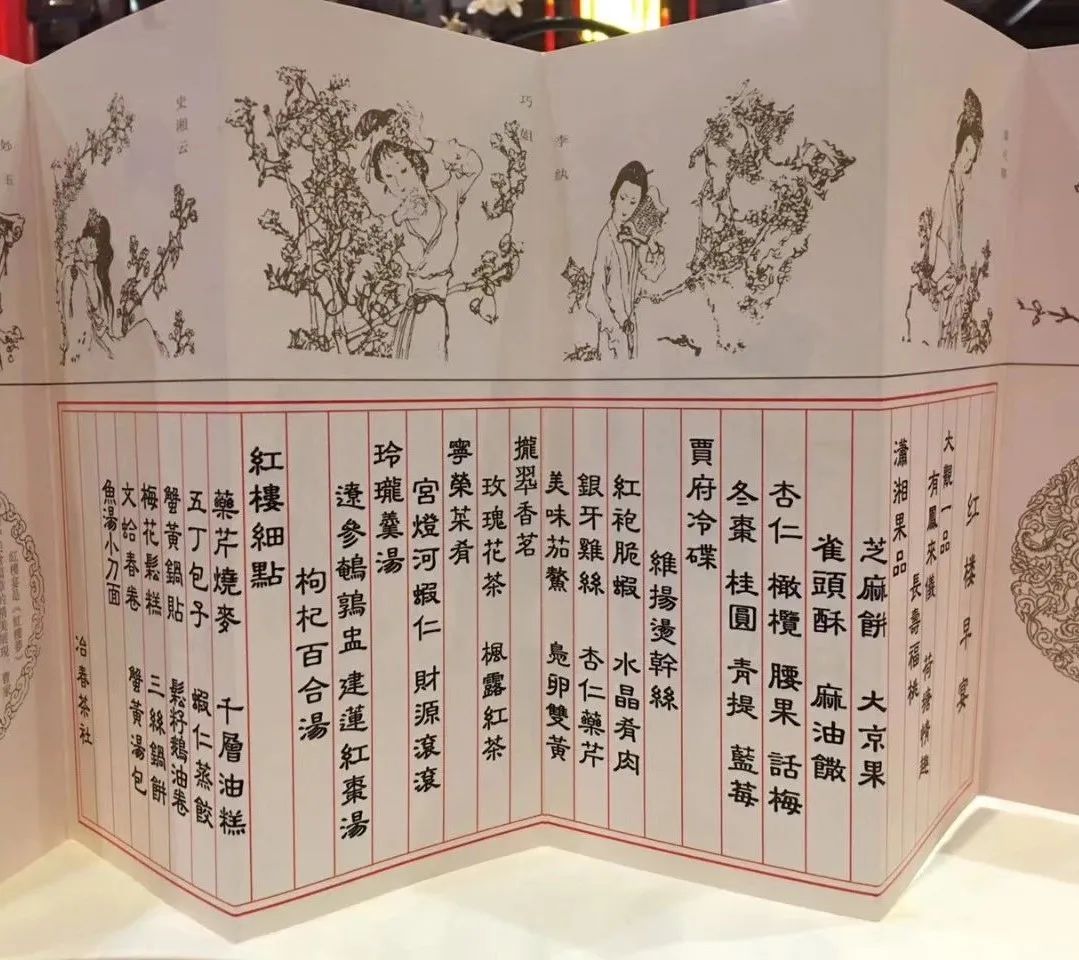 史湘云
巧姐
李纨
妙玉
红楼早宴
大觀一品
有鳳來儀 荷塘情趣
長壽福桃
瀟湘果品
芝麻餅 大京果
雀頭酥 麻油饊
杏仁 橄欖 腰果 話梅
冬棗 桂圓 青提 藍莓
賈府冷碟
維揚燙幹絲
紅袍脆蝦 水晶肴肉
銀牙雞絲 杏仁藥芹
美味茄鯗 鳧卵雙黃
攏翠香茗
玫瑰花茶 楓露紅茶
寧榮菜肴
宮燈河蝦仁 財源滾滾
玲瓏羹湯
遼參鵪鶉盅 建蓮紅棗湯
枸杞百合湯
紅樓細點
藥芹燒麥 千層油糕
五丁包子 蝦仁蒸餃
蟹黃鍋貼 鬆籽鵝油卷
梅花鬆糕 三絲鍋餅
文蛤春卷 蟹黃湯包
魚湯小刀面
冶春茶社
紅樓宴是《紅樓夢》